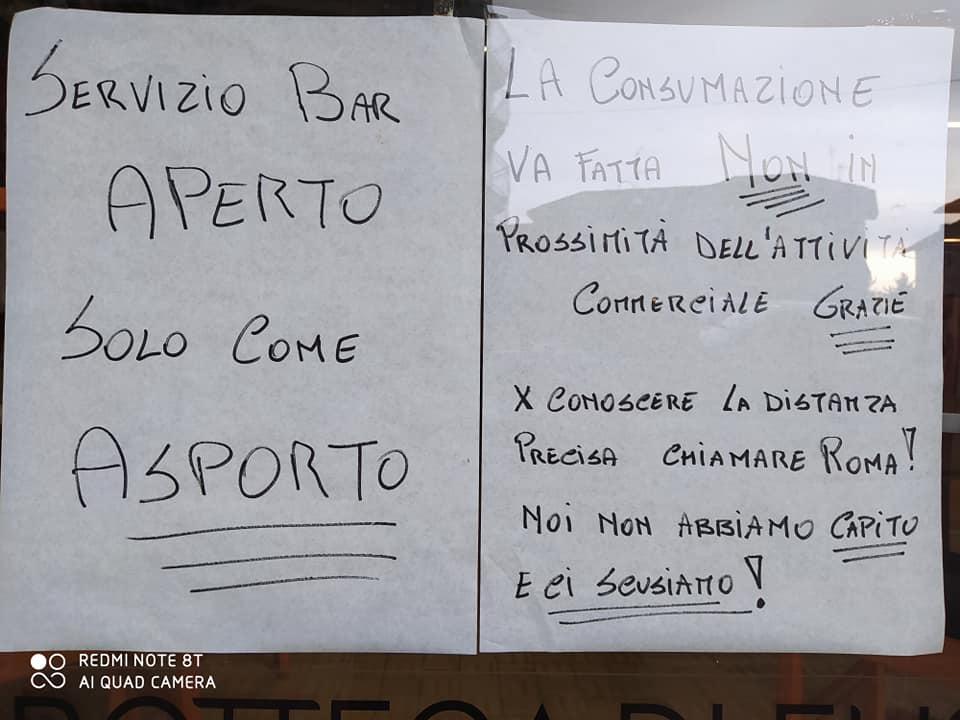 SERVIZIO BAR
APERTO
SOLO COME
ASPORTO
LA CONSUMAZIONE
VA FATTA NON IN
PROSSIMITÀ DELL'ATTIVITÀ
COMMERCIALE GRAZIE
X CONOSCERE LA DISTANZA
PRECISA CHIAMARE ROMA!
NOI NON ABBIAMO CAPITO
E CI SCUSIAMO!
REDMI NOTE 8T
AI QUAD CAMERA
BOTTEGA DI